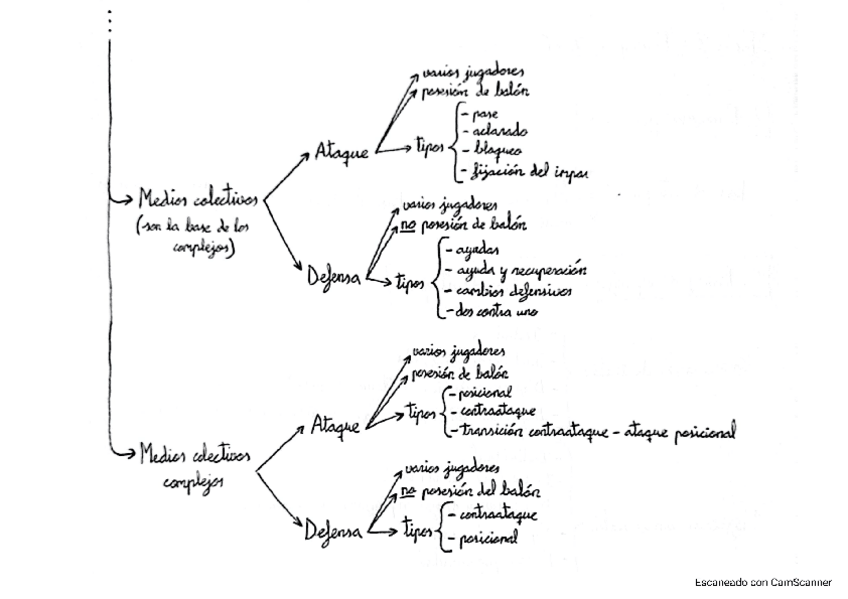 varios jugadores
posesión de balón
Ataque
tipos
- pase
- aclarado
- bloqueo
- fijación del impar
Medios colectivos
(son la base de los
complejos)
varios jugadores
no posesión de balón
Defensa
tipos
- ayudas
- ayuda y recuperación
- cambios defensivos
- dos contra uno
varios jugadores
posesión de balón
Ataque
tipos
- posicional
- contraataque
- transición contraataque - ataque posicional
Medios colectivos
complejos
varios jugadores
no posesión del balón
Defensa
tipos
- contraataque
- posicional
Escaneado con CamScanner